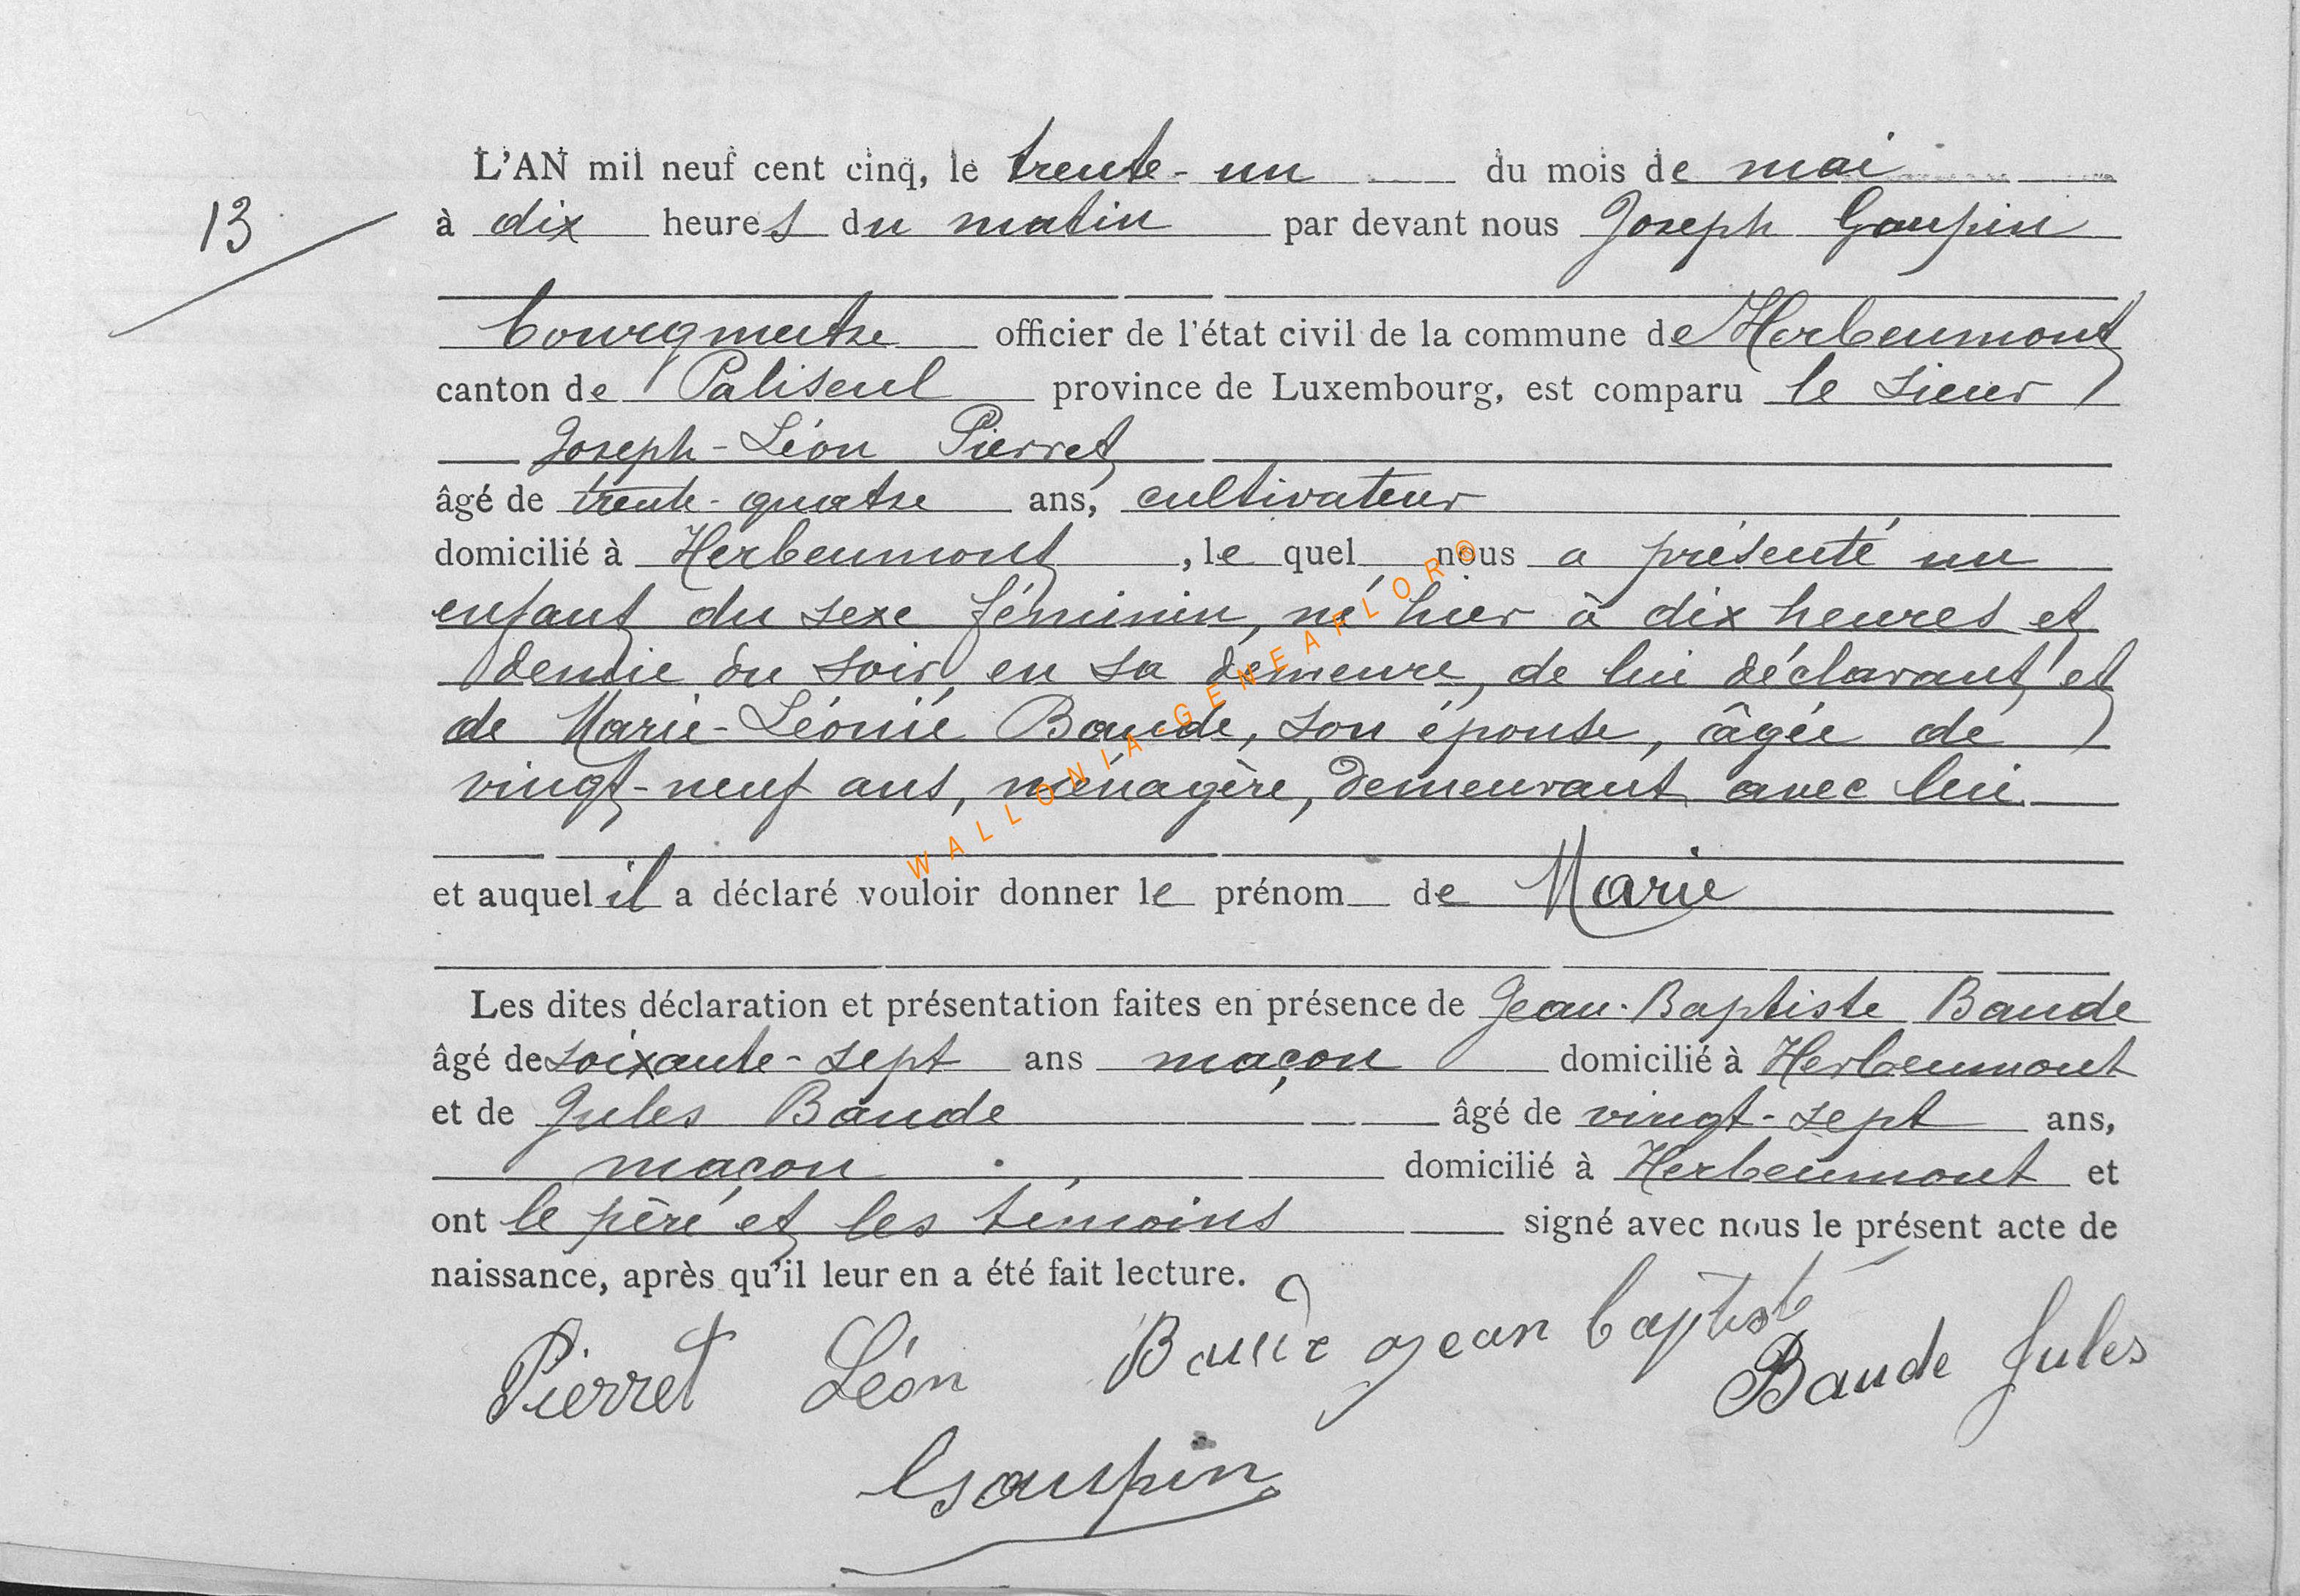 L'AN mil neuf cent cinq, le trente-un du mois de mai
13
à dix heures du matin par devant nous Joseph Gaupin
bourgmestre officier de l'état civil de la commune de Herbeumont
canton de Paliseul province de Luxembourg, est comparu le sieur
Joseph-Léon Pierret
âgé de trente-quatre ans, cultivateur
domicilié à Herbeumont, le quel nous a présenté un
enfant du sexe féminin, né hier à dix heures et
demie du soir, en sa demeure, de lui déclarant et
de Marie-Léonie Baude, son épouse, âgée de
vingt-neuf ans, ménagère, demeurant avec lui
et auquel il a déclaré vouloir donner le prénom de Marie
Les dites déclaration et présentation faites en présence de Jean-Baptiste Baude
âgé de soixante-sept ans maçon domicilié à Herbeumont
et de Jules Baude âgé de vingt-sept ans,
maçon domicilié à Herbeumont et
ont le père et les témoins signé avec nous le présent acte de
naissance, après qu'il leur en a été fait lecture.
Pierret Léon Baude jean baptiste
Baude Jules
Gaupin
WALLONIA-GENEAFLOR®